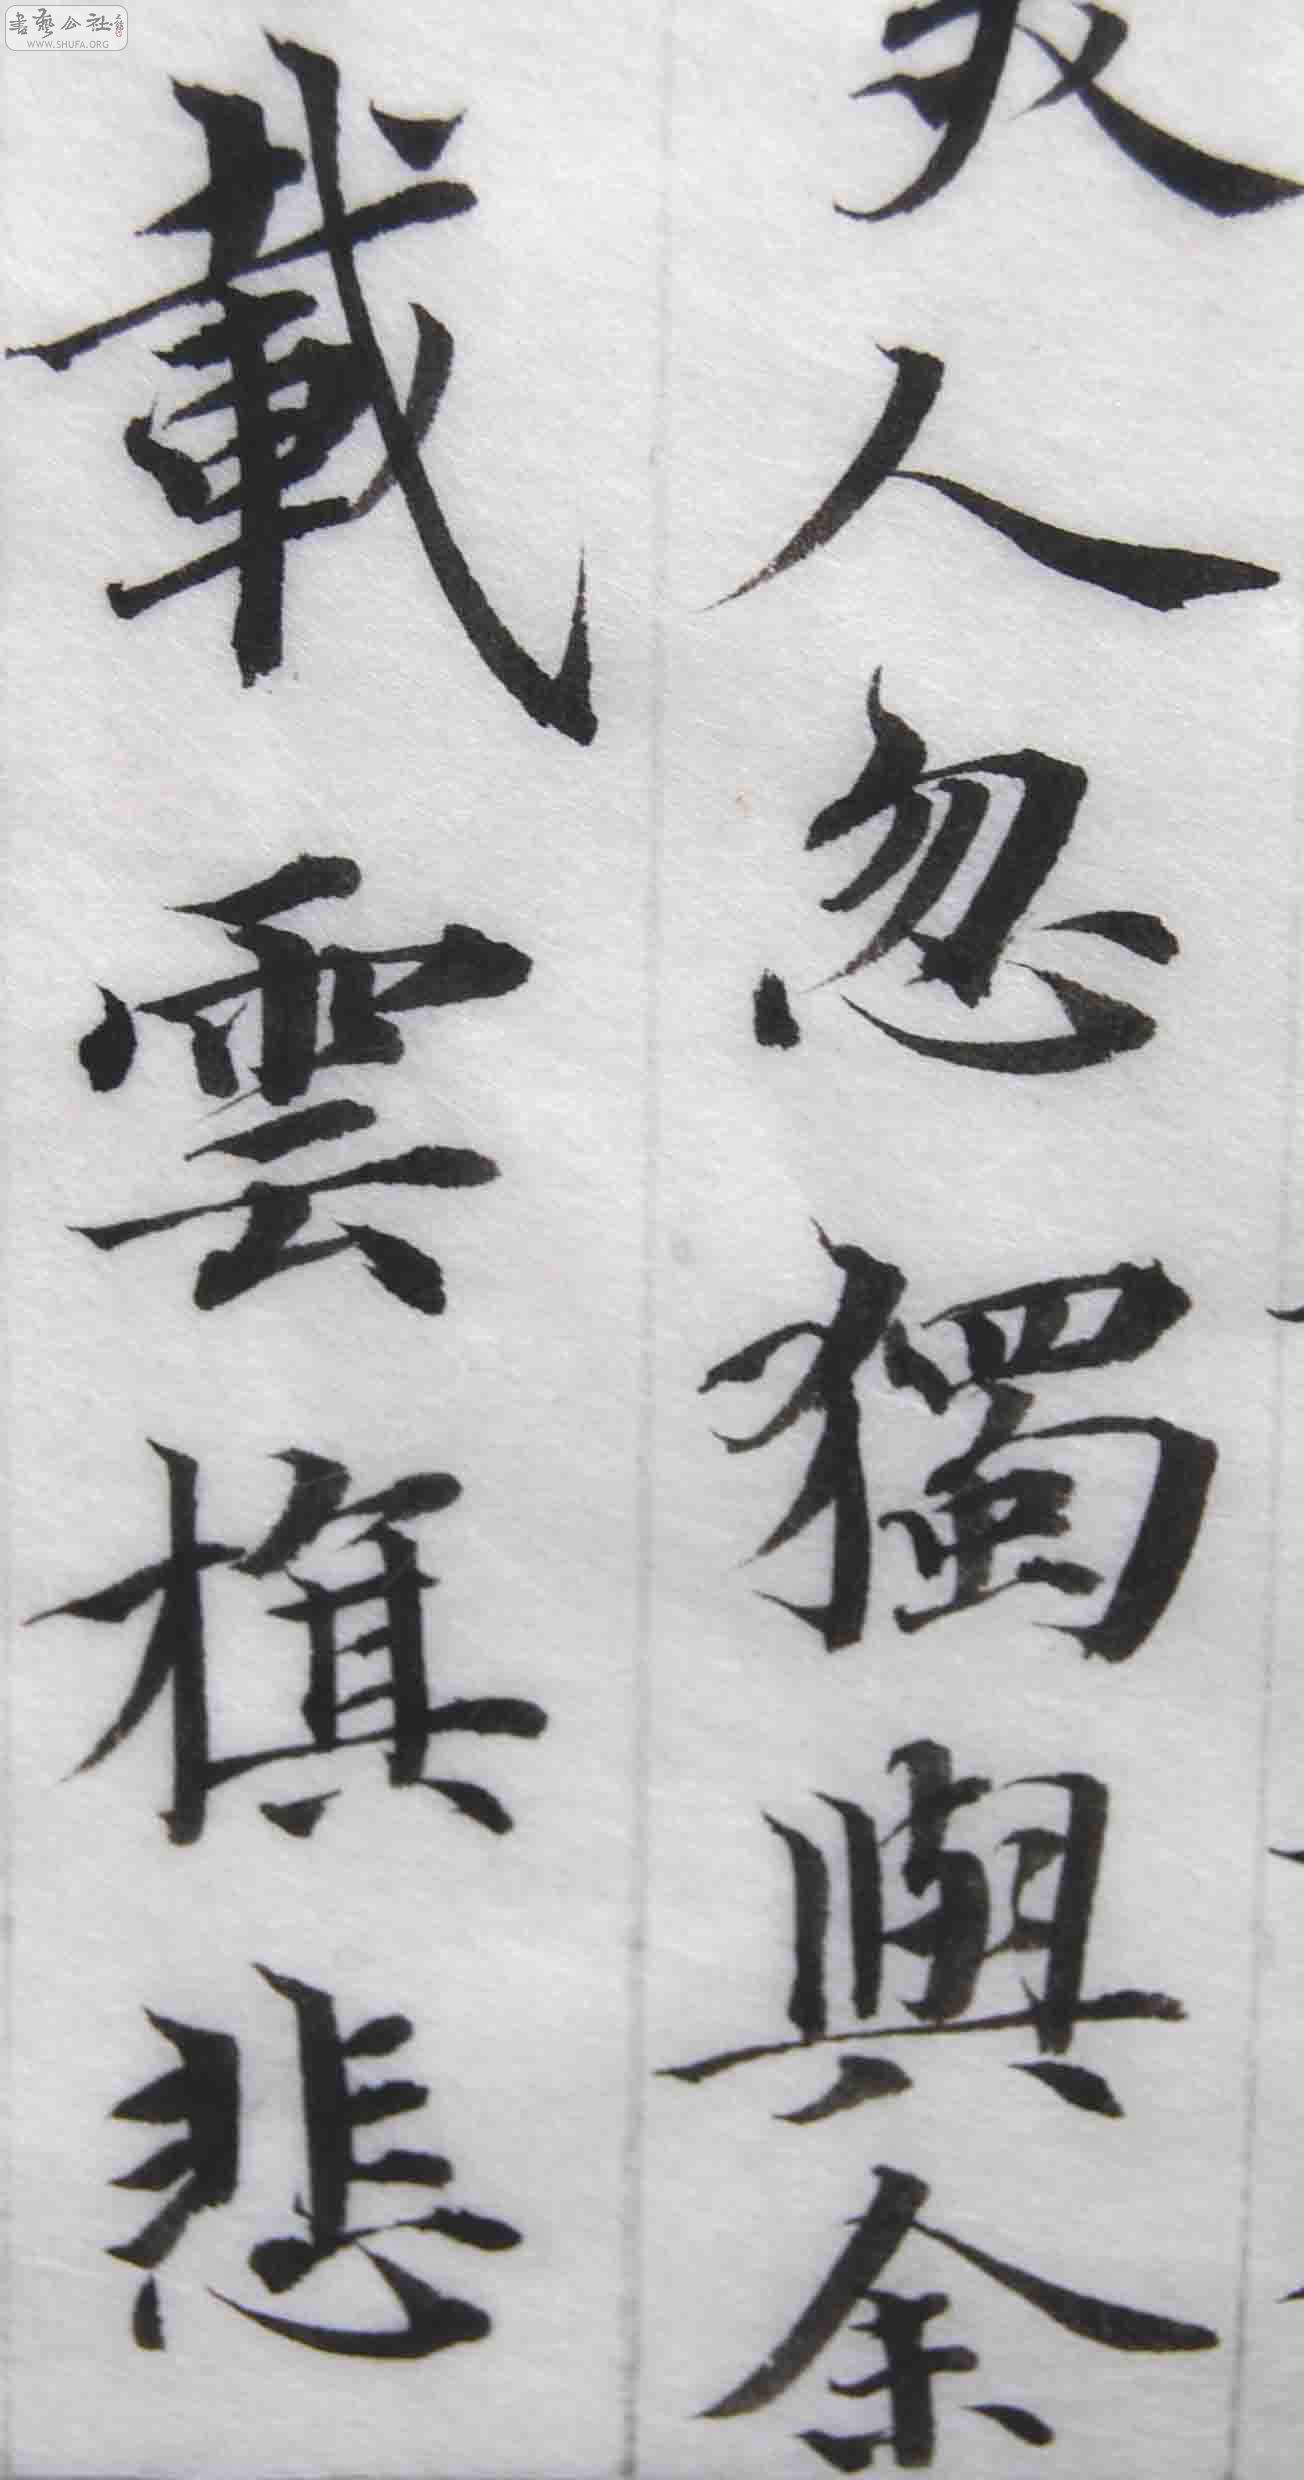 人忽獨與余
載雲旗悲
書藝公社
WWW.SHUFA.ORG